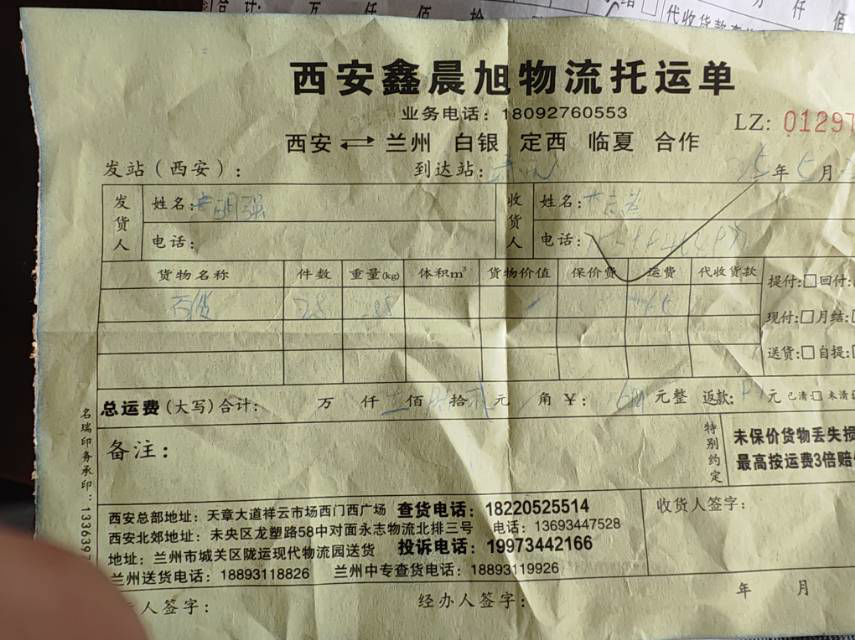 合计: 万 仟 佰 拾
代收货款
西安鑫晨旭物流托运单
业务电话: 18092760553
LZ: 01297
西安 ⇌ 兰州 白银 定西 临夏 合作
发站(西安): 到达站: 年 5月
发货人 姓名: 收货人 姓名:
电话: 电话:
货物名称 件数 重量(kg) 体积m³ 货物价值 保价费 运费 代收货款 提付:□回付:
百货 28
现付:□月结:
送货:□自提:
总运费(大写)合计: 万 仟 佰 拾 元 角 ¥: 元整 返款: 元 已清□ 未清
备注: 特别约定 未保价货物丢失损
最高按运费3倍赔
西安总部地址: 天章大道祥云市场西门西广场 查货电话: 18220525514 收货人签字:
西安北郊地址: 未央区龙塑路58中对面永志物流北排三号 电话: 13693447528
地址: 兰州市城关区陇运现代物流园送货 投诉电话: 19973442166
兰州送货电话: 18893118826 兰州中专查货电话: 18893119926
年 月
人签字: 经办人签字:
名瑞印务承印: 133639